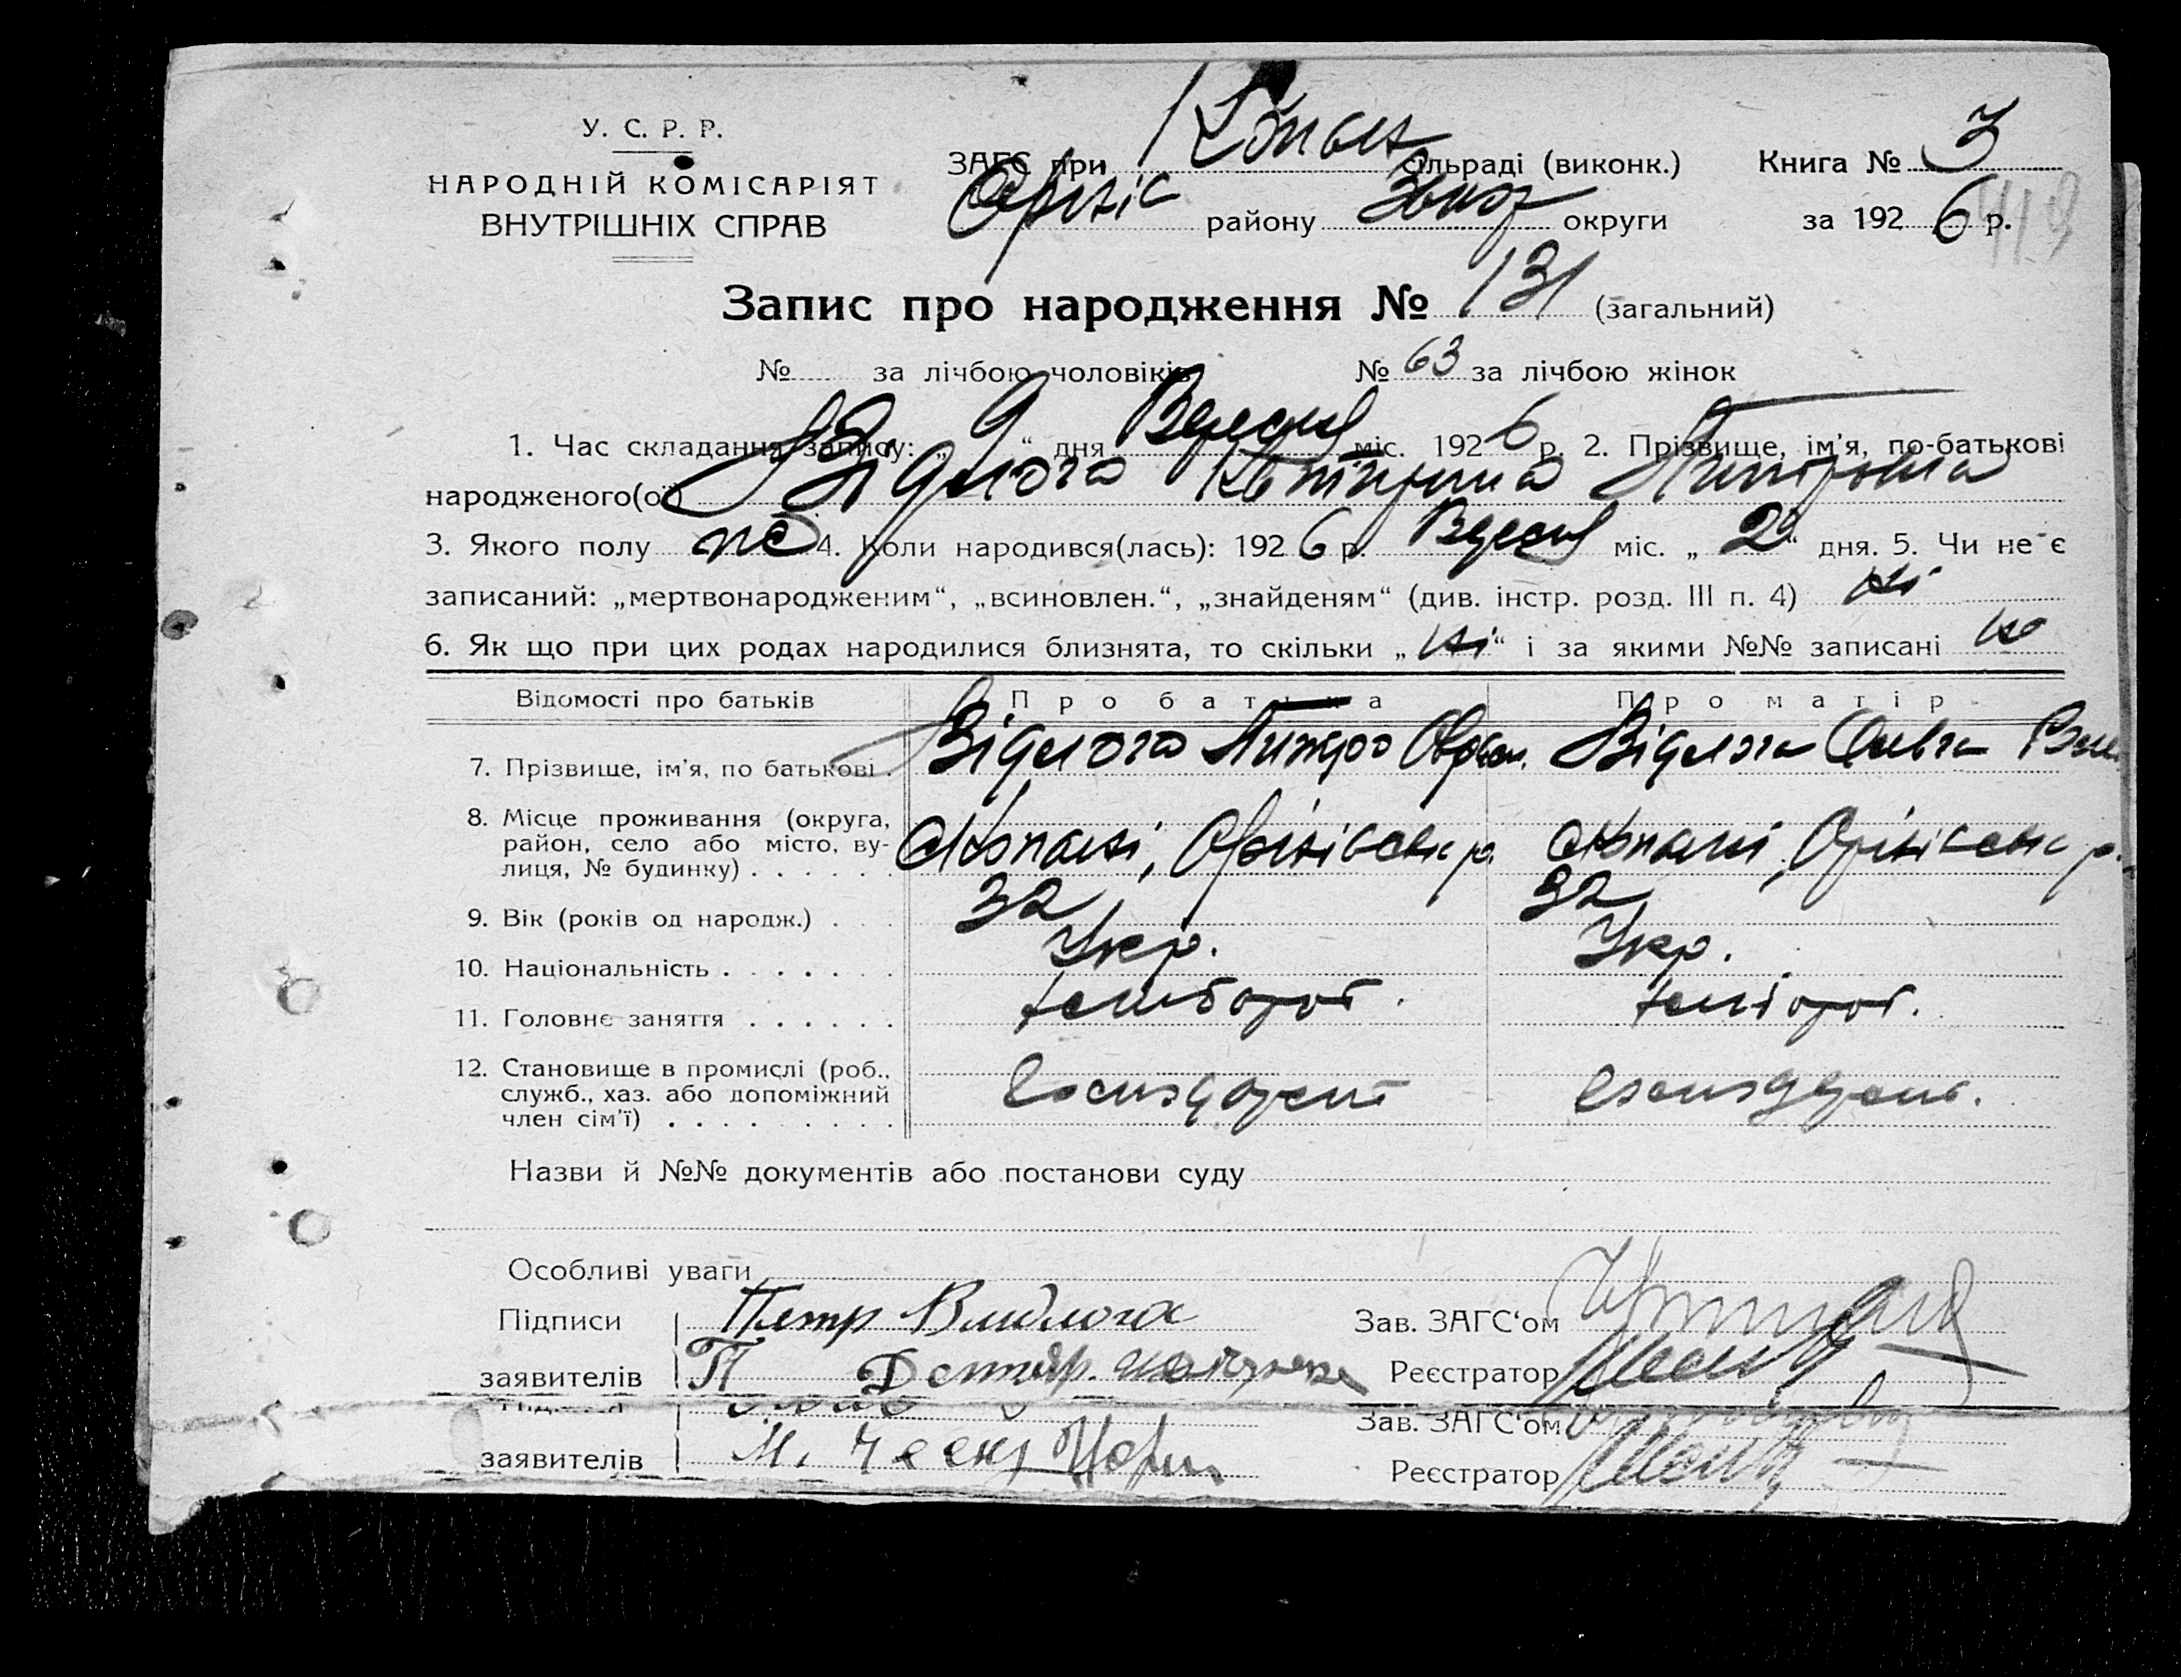 У. С. Р. Р.
НАРОДНІЙ КОМІСАРІЯТ
ВНУТРІШНІХ СПРАВ
ЗАГС при Копан сільраді (виконк.) Книга № 3
Орініс району округи за 1926 р.
Запис про народження № 131 (загальний)
№ за лічбою чоловіків № 63 за лічбою жінок
1. Час складання запису: „ 9 “ дня Вересня міс. 1926 р. 2. Прізвище, ім'я, по-батькові
народженого(ої) Відлога Катерина
3. Якого полу жін 4. Коли народився(лась): 1926 р. Вересня міс. „ 2 “ дня. 5. Чи не є
записаний: „мертвонародженим“, „всиновлен.“, „знайденям“ (див. інстр. розд. III п. 4) ні
6. Як що при цих родах народилися близнята, то скільки „ ні “ і за якими №№ записані
Відомості про батьків Про батька Про матір
7. Прізвище, ім'я, по батькові . Відлога Відлога Ольга
8. Місце проживання (округа, район, село або місто, вулиця, № будинку) . . . . . . Копані, Орінісськ р. Копані, Орінісськ р.
9. Вік (років од народж.) . . . 32 32
10. Національність . . . . . . . Укр. Укр.
11. Головне заняття . . . . . . хлібороб. хлібороб.
12. Становище в промислі (роб., служб., хаз. або допоміжний член сім'ї) . . . . . . . . .
Назви й №№ документів або постанови суду
Особливі уваги
Підписи Петр Видлога Зав. ЗАГС'ом
заявителів П Реєстратор
Зав. ЗАГС'ом
заявителів М. Реєстратор